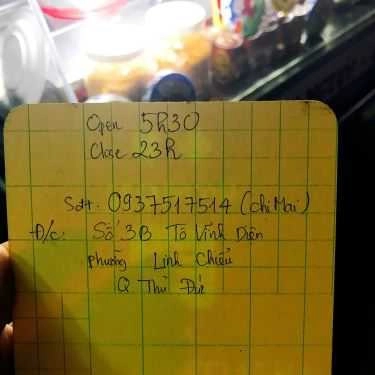 Open 5h30
Close 23h
Sđt. 0937517514 (chị Mai)
Đ/c: Số 3B Tô Vĩnh Diện
phường Linh Chiểu
Q. Thủ Đức